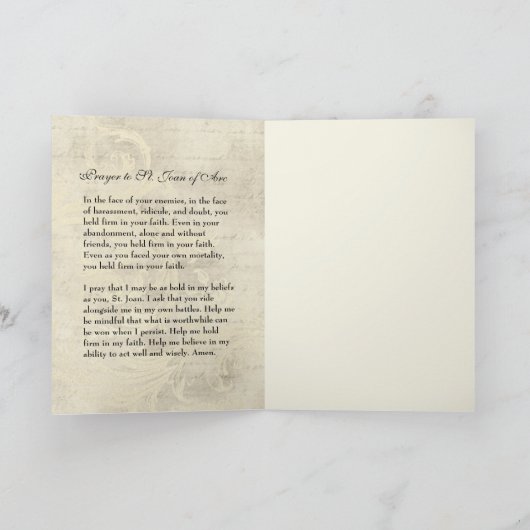 Prayer to St. Joan of Arc
In the face of your enemies, in the face
of harassment, ridicule, and doubt, you
held firm in your faith. Even in your
abandonment, alone and without
friends, you held firm in your faith.
Even as you faced your own mortality,
you held firm in your faith.
I pray that I may be as bold in my beliefs
as you, St. Joan. I ask that you ride
alongside me in my own battles. Help me
be mindful that what is worthwhile can
be won when I persist. Help me hold
firm in my faith. Help me believe in my
ability to act well and wisely. Amen.